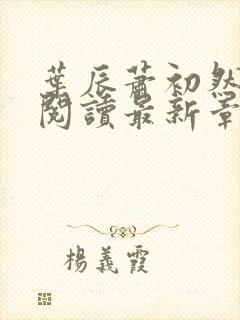 葉辰蕭初然
閱讀最新章
楊義霞